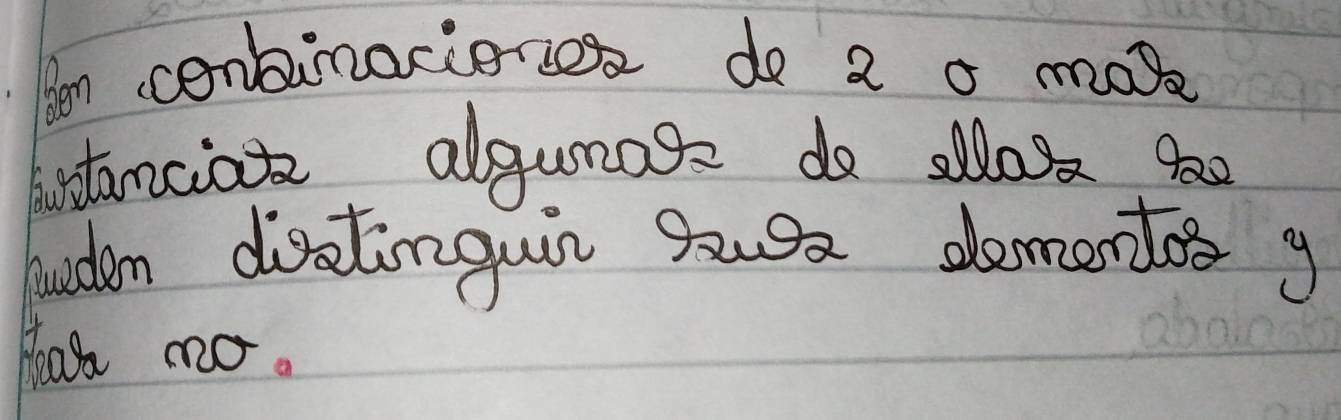 Son conbinaciones de 2 o mas
sustancias algunas de ellas se
pueden distinguir sus elementos y
otras no.